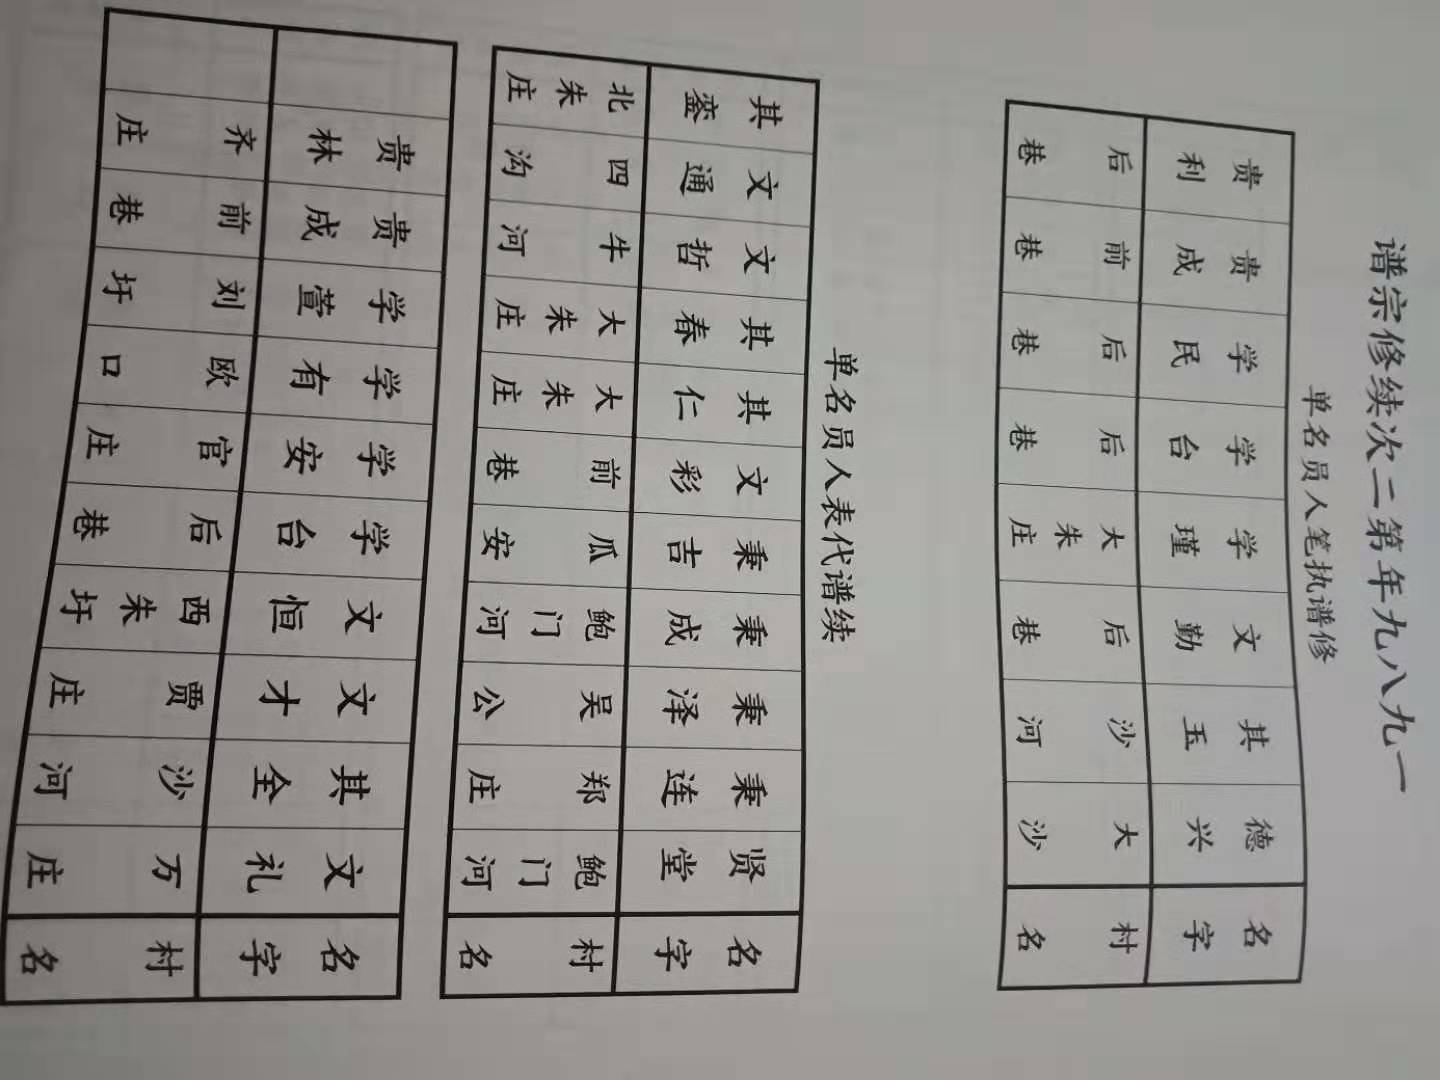 一九八九年第二次续修宗谱
修谱执笔人员名单
名字 德兴 其玉 文勤 学瑾 学台 学民 贵成 贵利
村名 大沙 沙河 后巷 大朱庄 后巷 后巷 前巷 后巷
续谱代表人员名单
名字 贤堂 秉连 秉泽 秉成 秉吉 文彩 其仁 其春 文哲 文通 其銮
村名 鲍门河 郑庄 吴公 鲍门河 瓜安 前巷 大朱庄 大朱庄 牛河 四沟 北朱庄
名字 文礼 其全 文才 文恒 学台 学安 学有 学萱 贵成 贵林
村名 万庄 沙河 贾庄 西朱圩 后巷 官庄 欧口 刘圩 前巷 齐庄